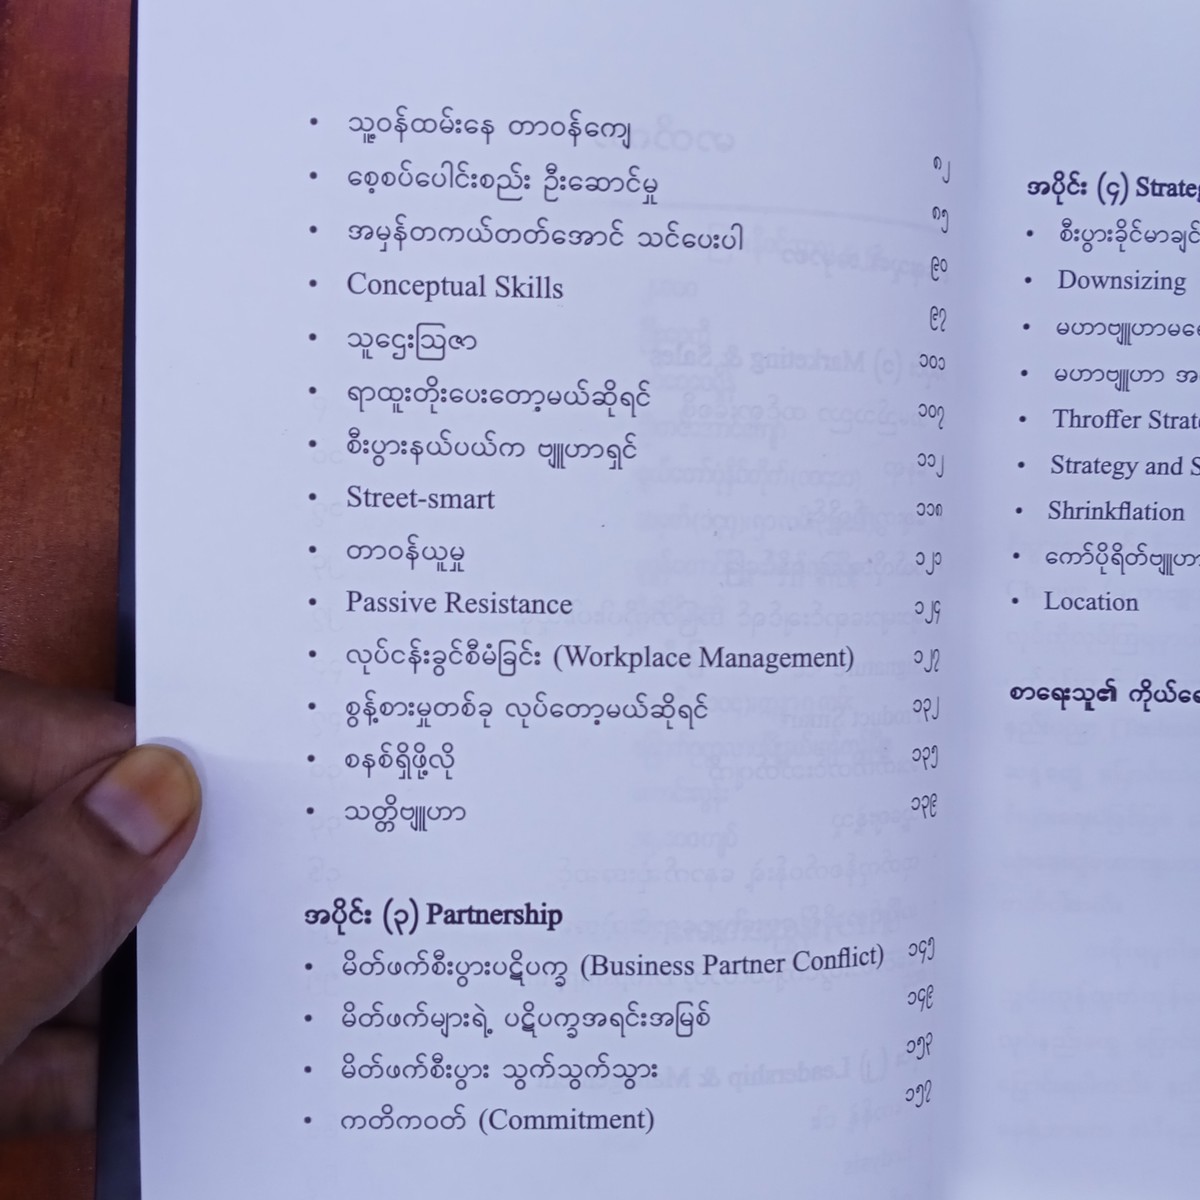 • သူ့ဝန်ထမ်းနေ တာဝန်ကျေ ၈၂
• စေ့စပ်ပေါင်းစည်း ဦးဆောင်မှု ၈၅
• အမှန်တကယ်တတ်အောင် သင်ပေးပါ ၉၀
• Conceptual Skills ၉၇
• သူဌေးဩဇာ ၁၀၁
• ရာထူးတိုးပေးတော့မယ်ဆိုရင် ၁၀၇
• စီးပွားနယ်ပယ်က ဗျူဟာရှင် ၁၁၂
• Street-smart ၁၁၈
• တာဝန်ယူမှု ၁၂၁
• Passive Resistance ၁၂၄
• လုပ်ငန်းခွင်စီမံခြင်း (Workplace Management) ၁၂၇
• စွန့်စားမှုတစ်ခု လုပ်တော့မယ်ဆိုရင် ၁၃၂
• စနစ်ရှိဖို့လို ၁၃၅
• သတ္တိဗျူဟာ ၁၃၉
အပိုင်း (၃) Partnership
• မိတ်ဖက်စီးပွားပဋိပက္ခ (Business Partner Conflict) ၁၄၅
• မိတ်ဖက်များရဲ့ ပဋိပက္ခအရင်းအမြစ် ၁၄၉
• မိတ်ဖက်စီးပွား သွက်သွက်သွား ၁၅၃
• ကတိကဝတ် (Commitment) ၁၅၇
အပိုင်း (၄)
• စီးပွားခိုင်မာချင်
• Downsizing
• မဟာဗျူဟာ
• မဟာဗျူဟာ
• Throffer
• Strategy and
• Shrinkflation
• ကော်ပိုရိတ်ဗျူဟာ
• Location
စာရေးသူ၏